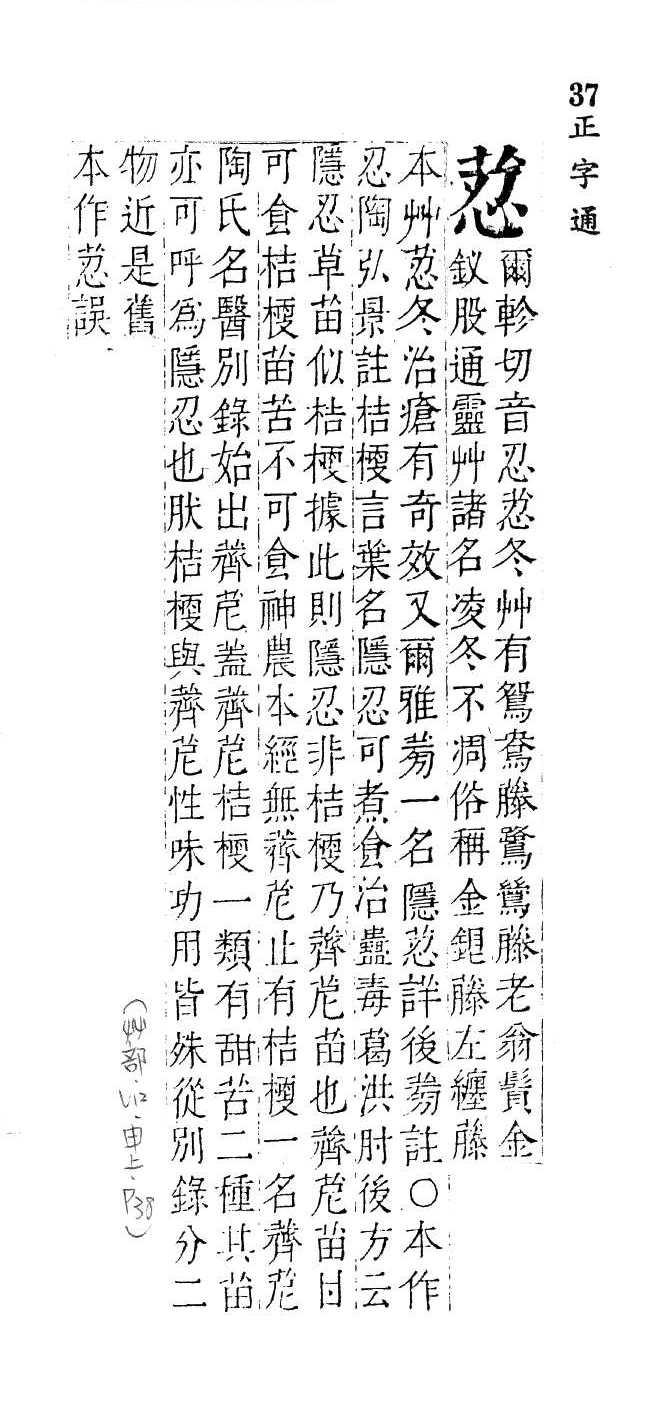 37 正字通
荵
爾軫切音忍荵冬艸有鴛鴦藤鷺鷥藤老翁鬚金
釵股通靈艸諸名凌冬不凋俗稱金銀藤左纏藤
本艸荵冬治瘡有奇效又爾雅蒡一名隱荵詳後蒡註○本作
忍陶弘景註桔梗言葉名隱忍可煮食治蠱毒葛洪肘後方云
隱忍草苗似桔梗據此則隱忍非桔梗乃薺苨苗也薺苨苗甘
可食桔梗苗苦不可食神農本經無薺苨止有桔梗一名薺苨
陶氏名醫別錄始出薺苨蓋薺苨桔梗一類有甜苦二種其苗
亦可呼爲隱忍也肰桔梗與薺苨性味功用皆殊從別錄分二
物近是舊
本作荵誤
(艸部、申上、P38)